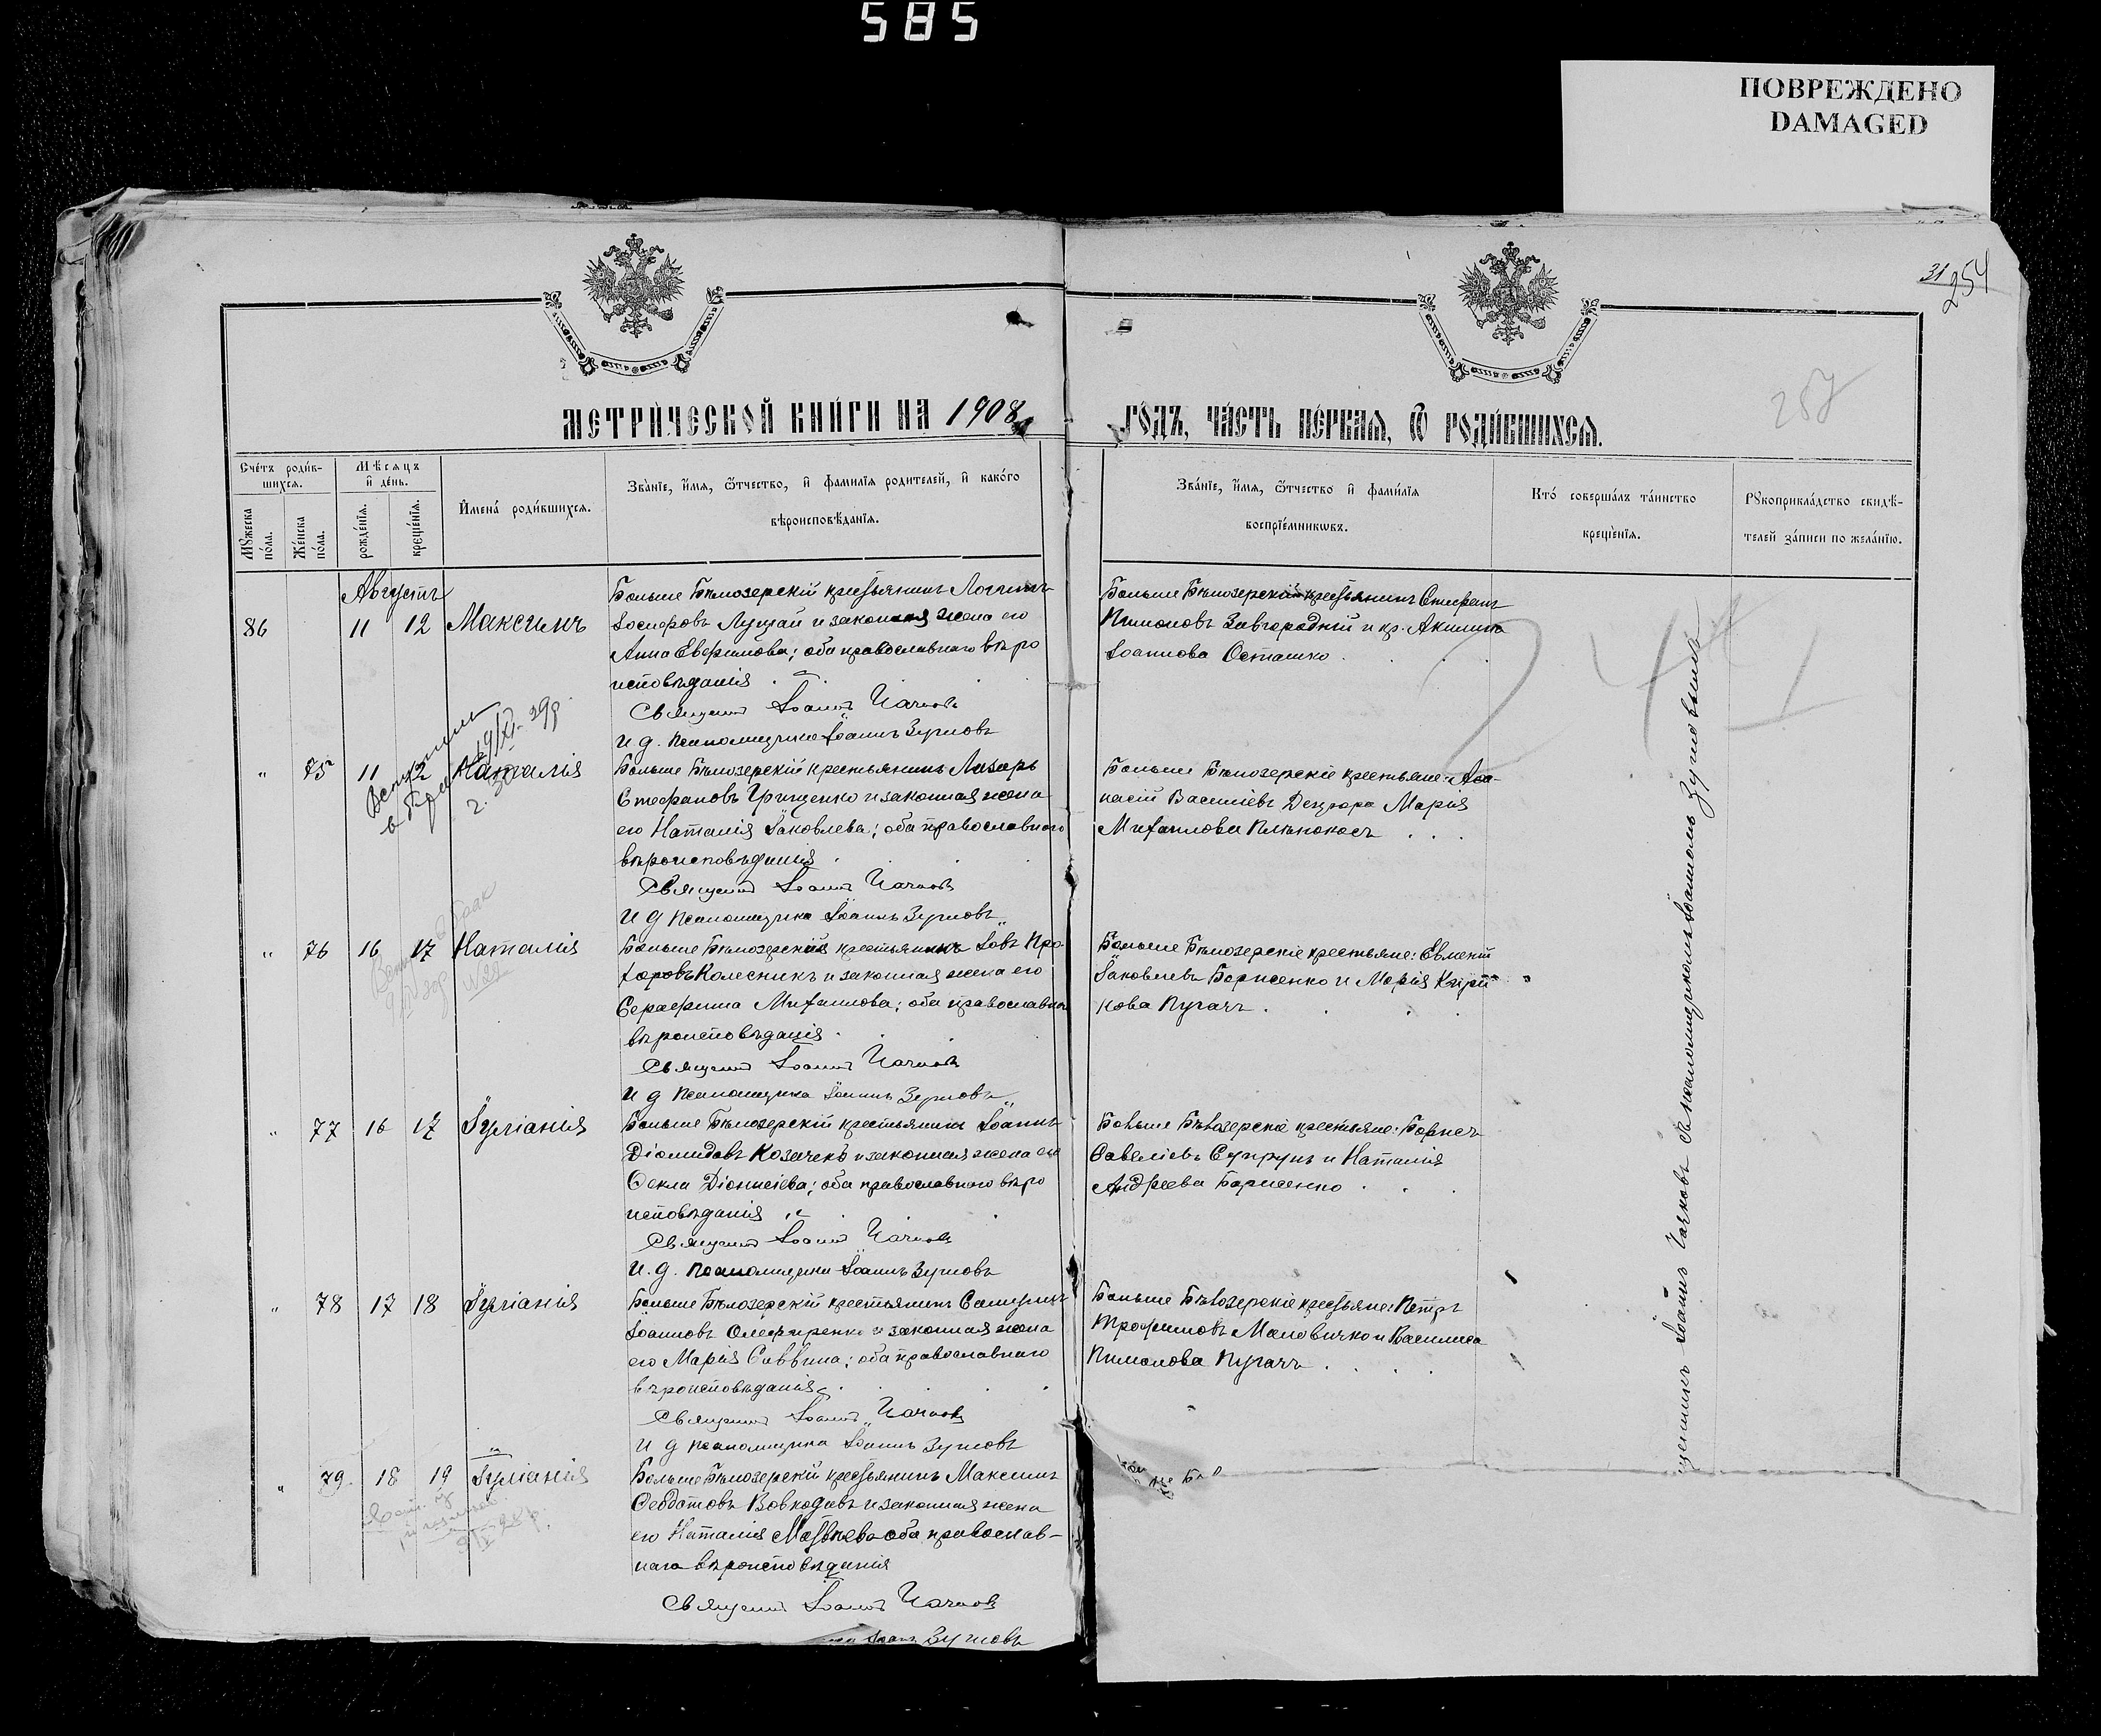 585
ПОВРЕЖДЕНО
DAMAGED
31
254
257
МЕТРИ́ЧЕСКОЙ КНИ́ГИ НА 1908
ГО́ДЪ, ЧА́СТЬ ПЕ́РВАѦ, Ѽ РОДИ́ВШИХСѦ.
Сче́тъ роди́в-
шихсѧ.
Мѣсѧцъ
и҆ де́нь.
Мꙋ́жеска
по́ла.
Же́нска
по́ла.
рожде́нїѧ.
креще́нїѧ.
И҆мена̀ роди́вшихсѧ.
Зва́нїе, и҆́мѧ, ѻ҆́тчество, и҆ фами́лїѧ родителей, и҆ како́гѡ
вѣроисповѣ́данїѧ.
Зва́нїе, и҆́мѧ, ѻ҆́тчество и҆ фами́лїѧ
воспрїе́мникѡвъ.
Кто̀ соверша́лъ та́инство
креще́нїѧ.
Рꙋкоприкла́дство свидѣ́-
телей за́писи по жела́нїю.
Августъ
86 11 12 Максимъ
Больше Бѣлозерскій крестьянинъ Логгинъ
Іосифовъ Луцай и законная жена его
Анна Евфимова; оба православнаго вѣро
исповѣданія
Священ Іоаннъ Чачковъ
И. д. псаломщика Іоаннъ Зуиовъ
Больше Бѣлозерскій крестьянинъ Стефанъ
Пимоновъ Завгородній и кр. Акилина
Іоаннова Осташко
241
" 75 11 12 Наталія
Вступила
в брак 19/XI 29г
Больше Бѣлозерскій крестьянинъ Лазарь
Стефановъ Грищенко и законная жена
его Наталія Іаковлева; оба православнаго
вѣроисповѣданія
Священ Іоаннъ Чачковъ
И д псаломщика Іоаннъ Зуиовъ
Больше Бѣлозерскіе крестьяне: Аѳа-
насій Василіевъ Дендора Марія
Михаилова
" 76 16 17 Наталія
брак
№20
Больше Бѣлозерскій крестьянинъ Іовъ Про-
хоровъ Колесникъ и законная жена его
Серафима Михаилова; оба православнаго
вѣроисповѣданія
Священ Іоаннъ Чачковъ
И д псаломщика Іоаннъ Зуиовъ
Больше Бѣлозерскіе крестьяне: Евменій
Іаковлевъ Борисенко и Марія Кири-
кова Пугачъ
" 77 16 17 Іуліанія
Больше Бѣлозерскій крестьянинъ Іоаннъ
Діомидовъ Козаченко и законная жена его
Ѳекла Діонисіева; оба православнаго вѣро
исповѣданія
Священ Іоаннъ Чачковъ
И. д. псаломщика Іоаннъ Зуиовъ
Больше Бѣлозерскіе крестьяне: Борисъ
Савеліевъ Супрунъ и Наталія
Андреева Борисенко
" 78 17 18 Іуліанія
Больше Бѣлозерскій крестьянинъ
Іоанновъ Олефиренко и законная жена
его Марія Саввина; оба православнаго
вѣроисповѣданія
Священ Іоаннъ Чачковъ
И д псаломщика Іоаннъ Зуиовъ
Больше Бѣлозерскіе крестьяне: Петръ
Трофимовъ Маловичко и Василиса
Пимонова Пугачъ
" 79. 18 19 Іуліанія
Больше Бѣлозерскій крестьянинъ Максимъ
Ѳеодотовъ Вовкодавъ и законная жена
его Наталія Матвѣева оба православ-
наго вѣроисповѣданія
Священ Іоаннъ Чачковъ
Іоаннъ Зуиовъ
Іоаннъ Чачковъ съ псаломщикомъ Іоанномъ Зуиовымъ